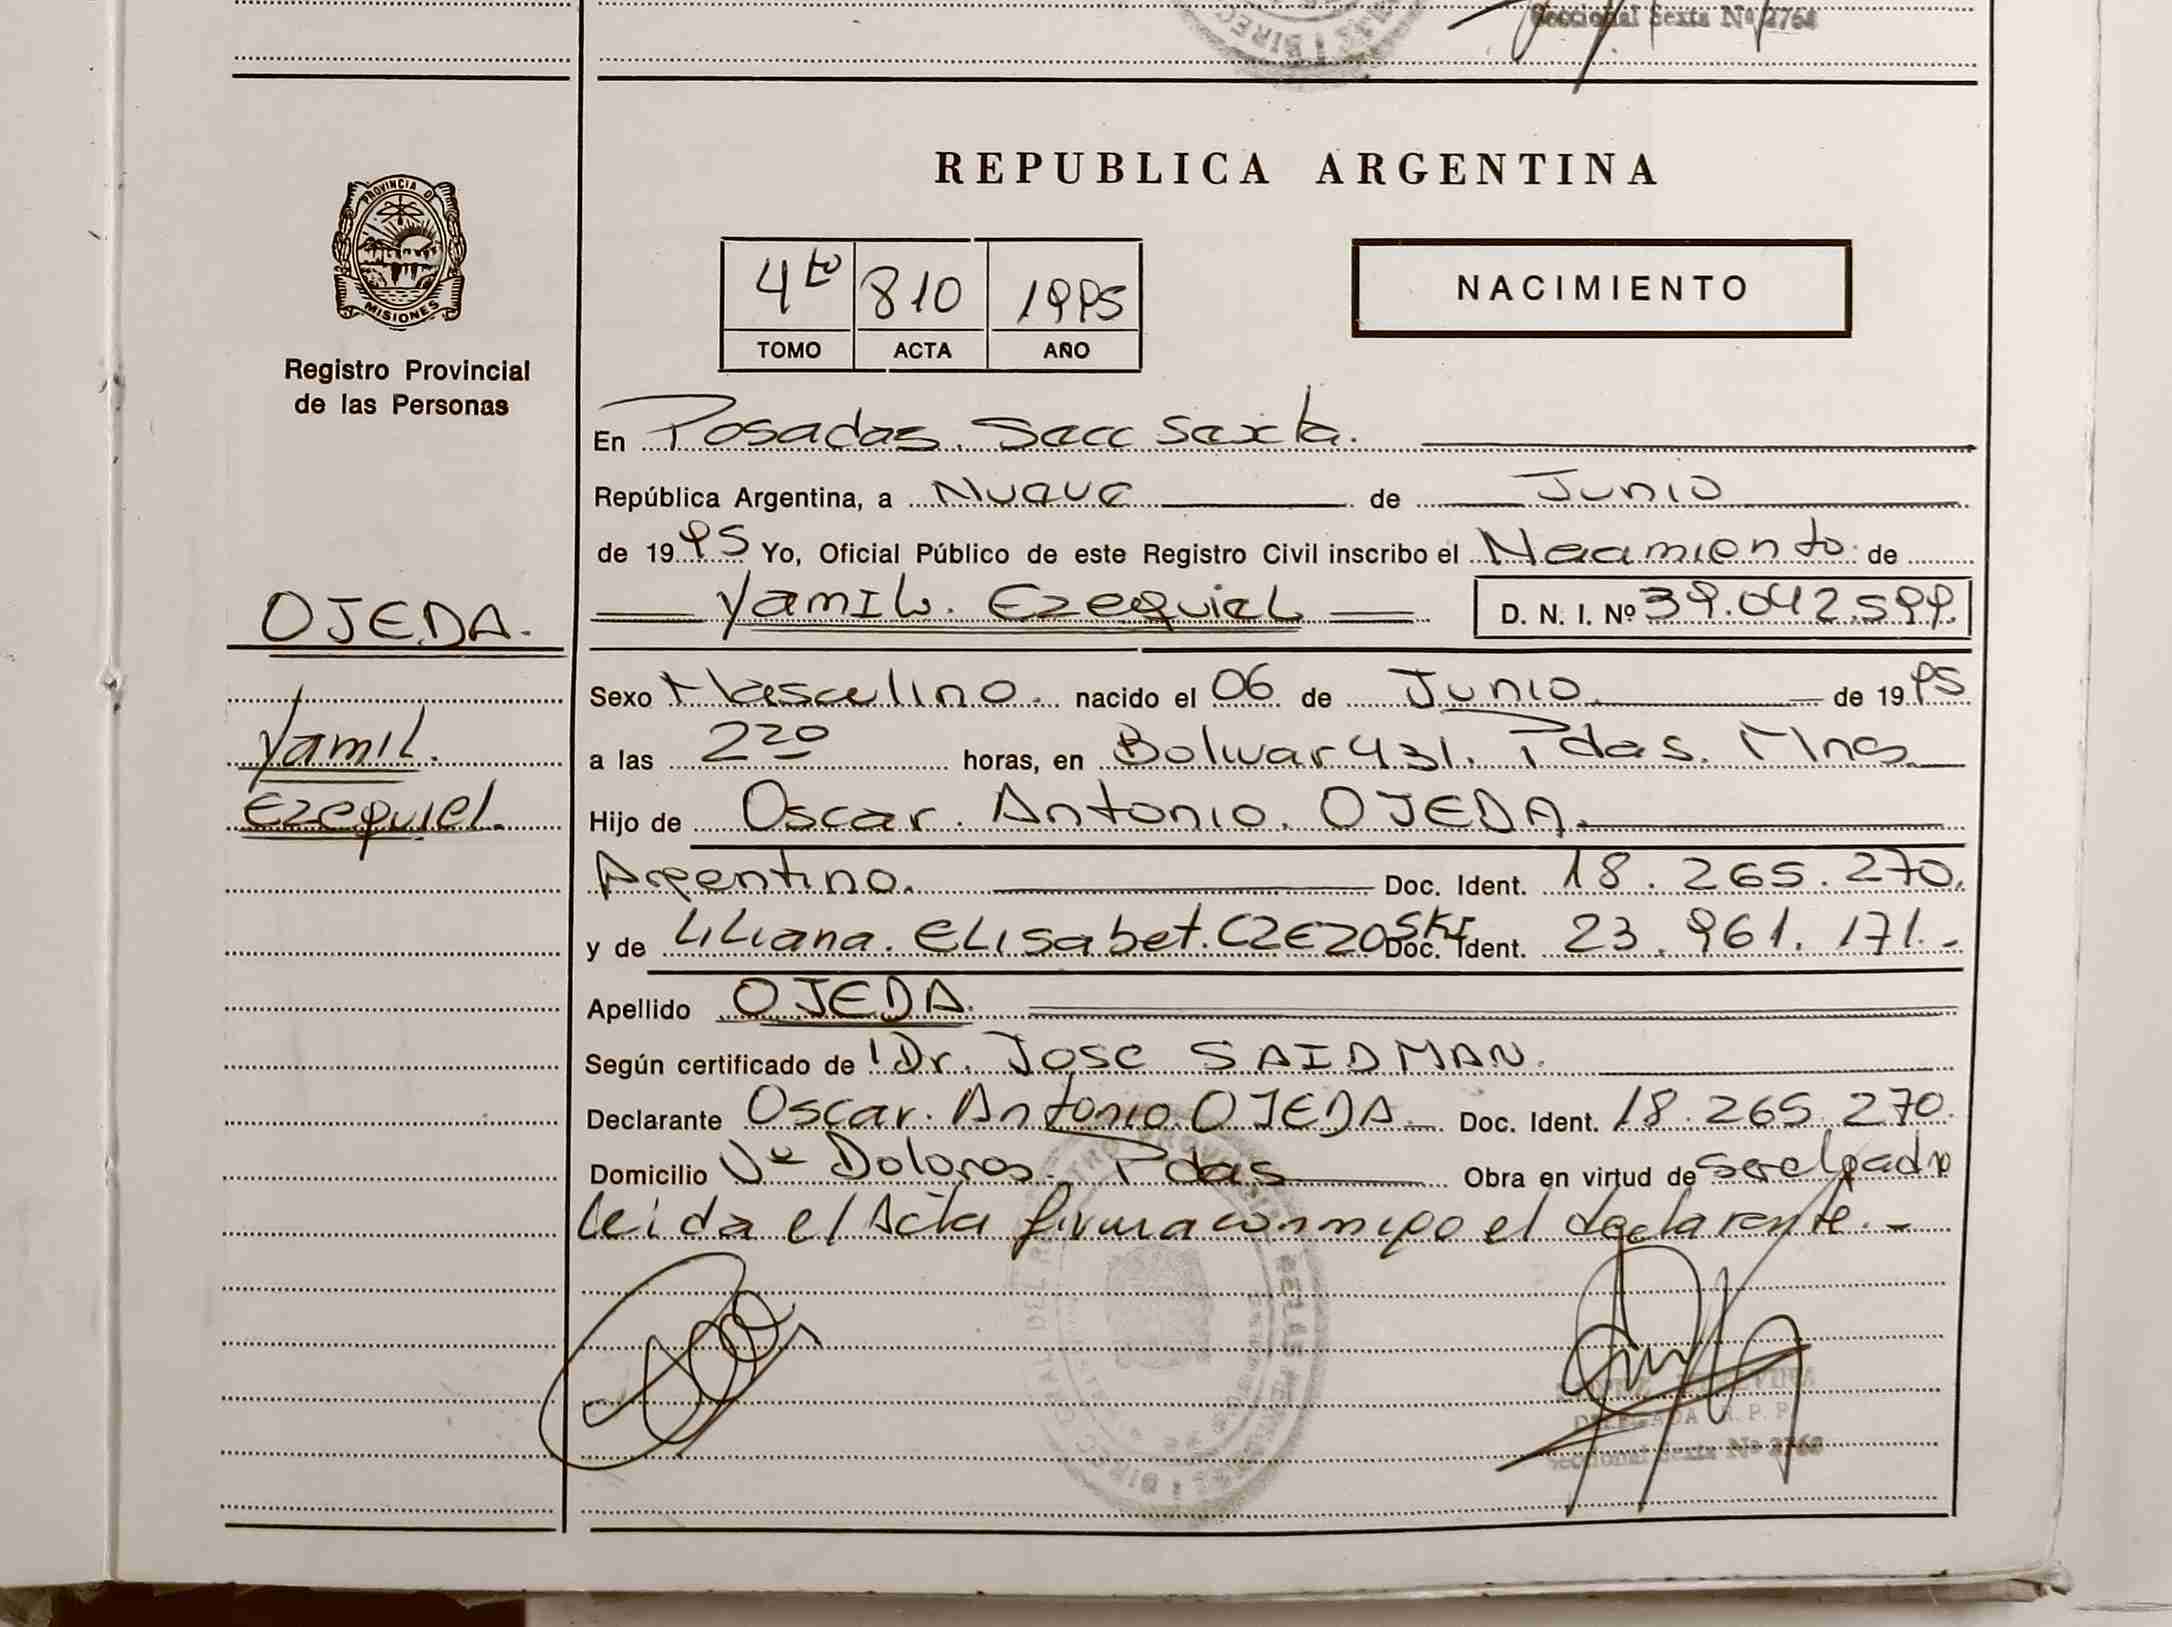 Seccional Sexta Nº 2768
REPUBLICA ARGENTINA
PROVINCIA DE
MISIONES
4to 810 1995
TOMO ACTA AÑO
NACIMIENTO
Registro Provincial
de las Personas
En Posadas. Secc Sexta.
República Argentina, a Nueve de Junio
de 1995 Yo, Oficial Público de este Registro Civil inscribo el Nacimiento de
OJEDA.
Yamil. Ezequiel D. N. I. Nº 39.042.599.
Sexo Masculino. nacido el 06 de Junio de 1995
Yamil.
a las 2 20 horas, en Bolivar 431. Pdas. Mnes
Ezequiel.
Hijo de Oscar. Antonio. OJEDA.
Argentino. Doc. Ident. 18.265.270.
y de Liliana. Elisabet. CZEZOSKI Doc. Ident. 23.961.171.-
Apellido OJEDA.
Según certificado de Dr. Jose SAIDMAN.
Declarante Oscar. Antonio. OJEDA Doc. Ident. 18.265.270.
Domicilio Vª Dolores. Pdas Obra en virtud de ser el padre
leida el Acta firma conmigo el declarante.-
DELEGADA R. P. P.
Seccional Sexta Nº 2768